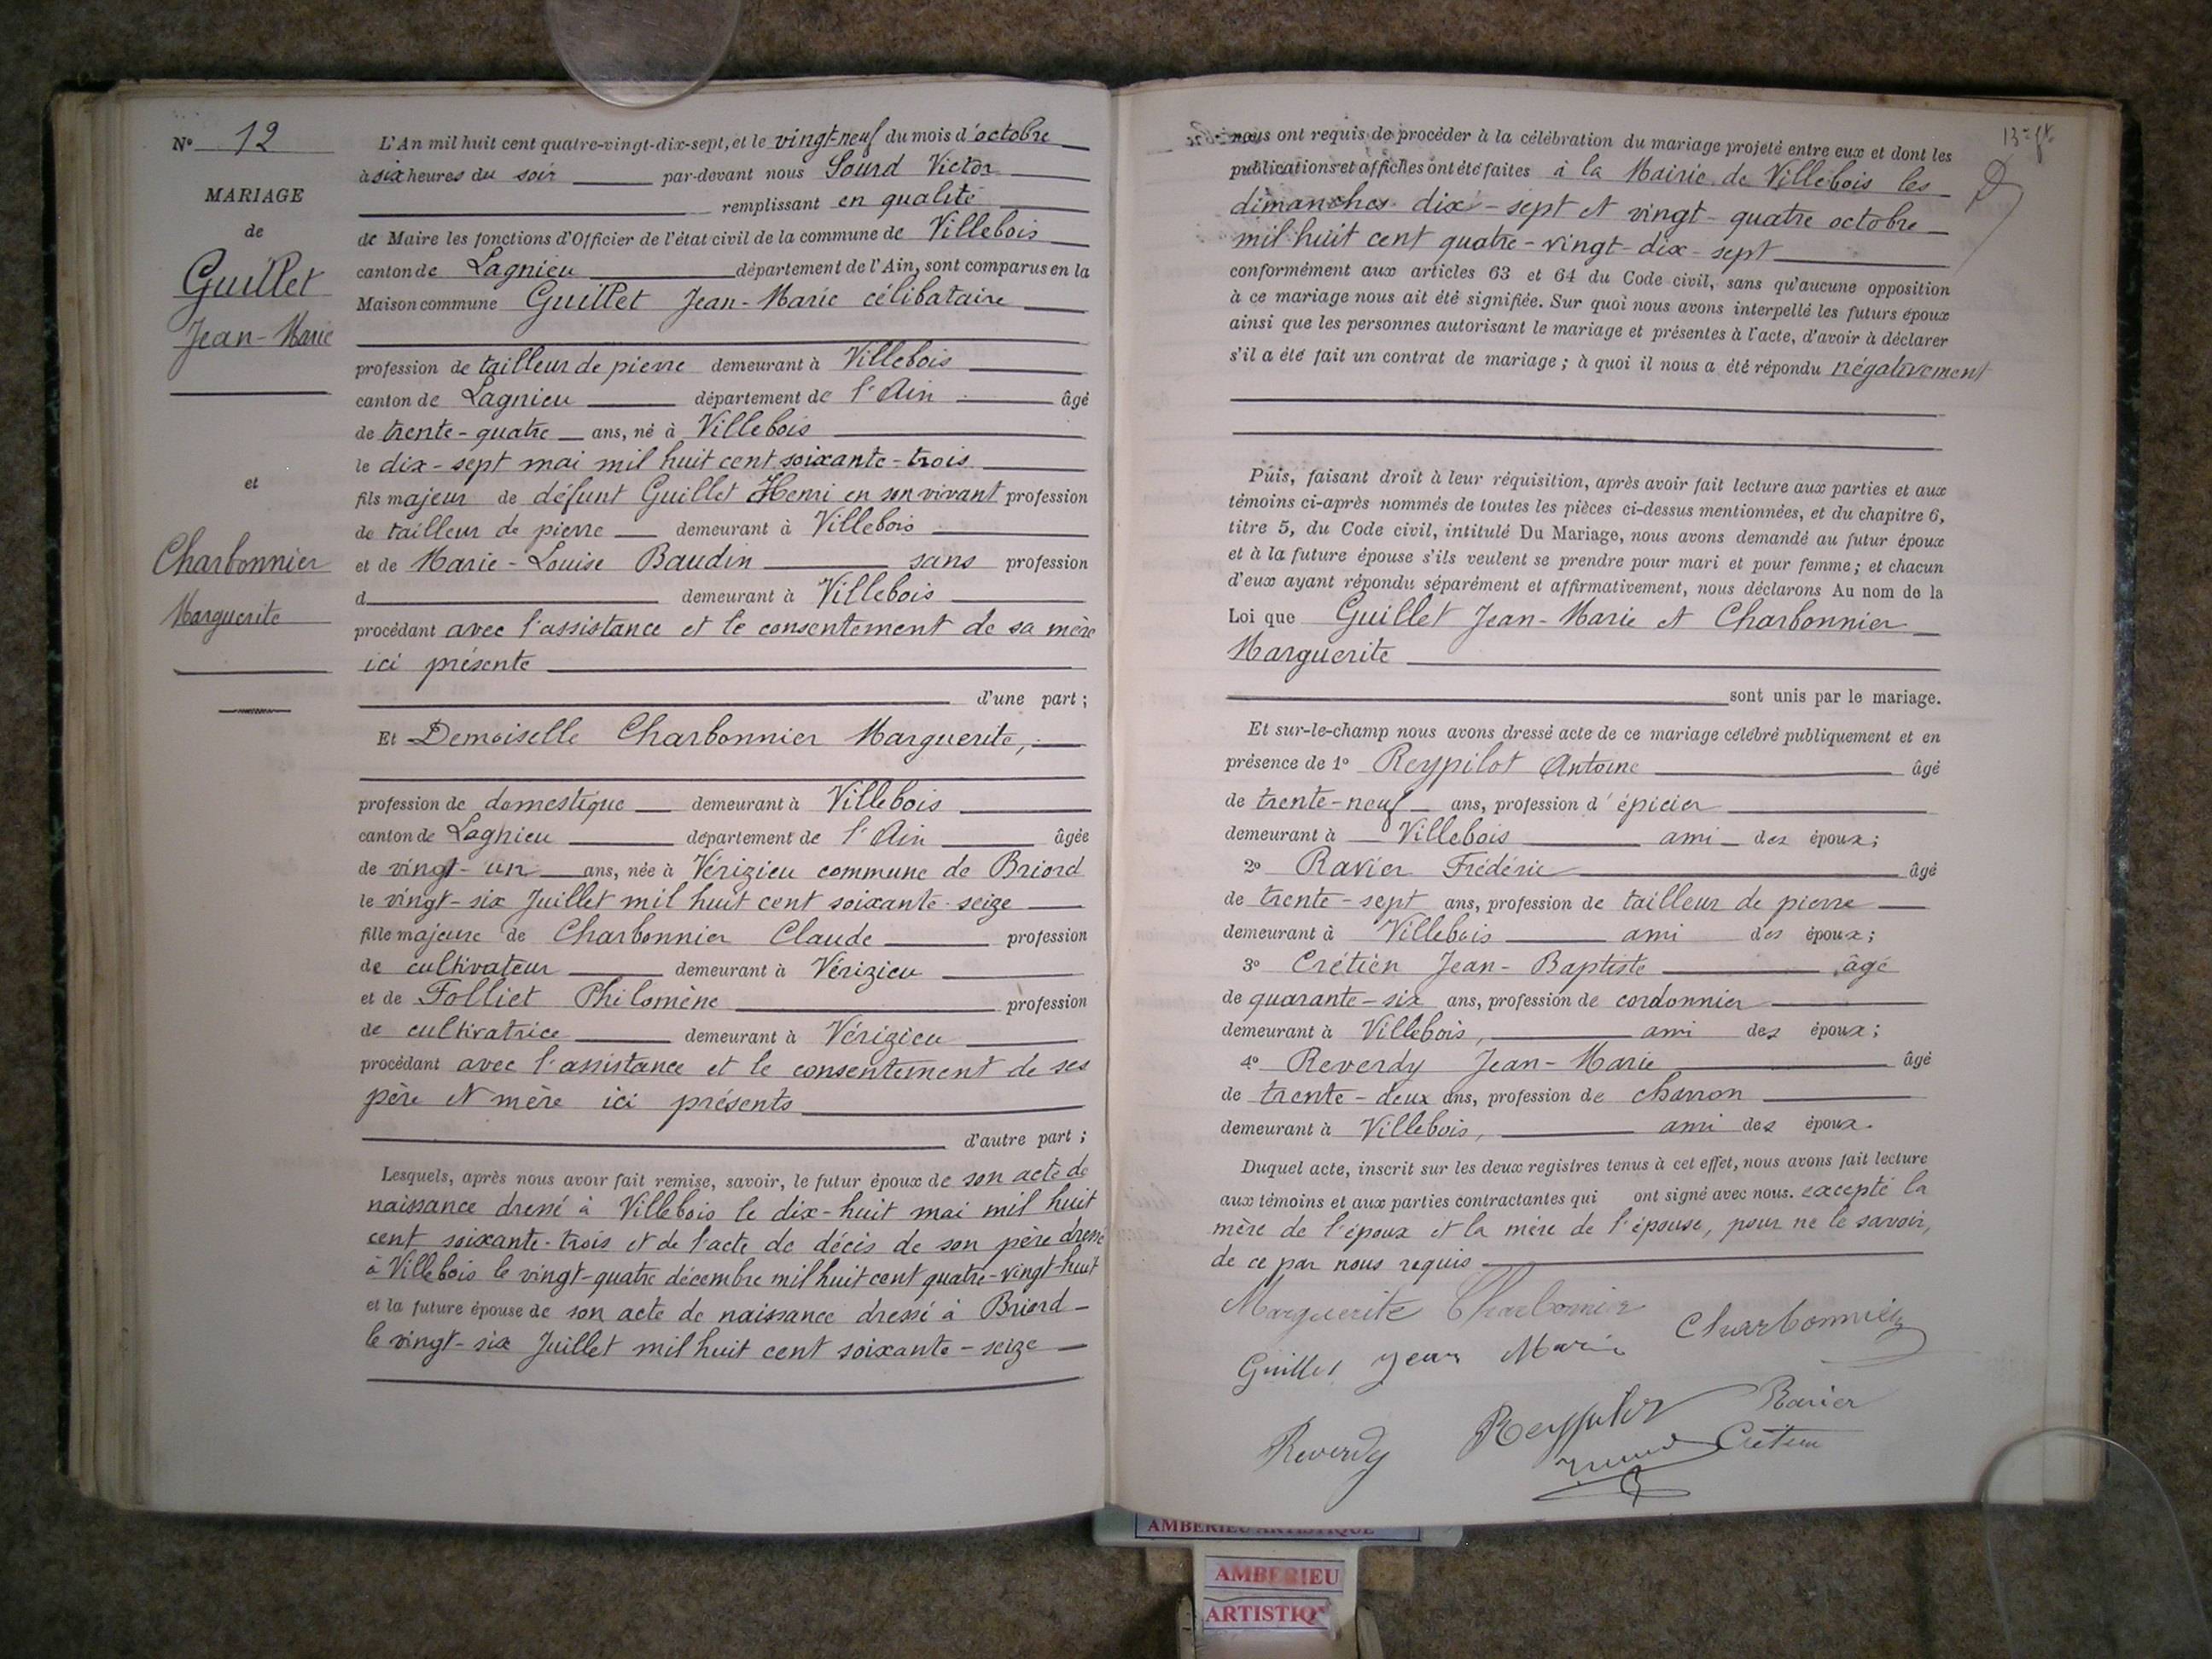 N° 12
MARIAGE
de
Guillet
Jean-Marie
et
Charbonnier
Marguerite
L'An mil huit cent quatre-vingt-dix-sept, et le vingt-neuf du mois d'octobre
à six heures du soir par-devant nous Sourd Victor
remplissant en qualité
de Maire les fonctions d'Officier de l'état civil de la commune de Villebois
canton de Lagnieu département de l'Ain, sont comparus en la
Maison commune Guillet Jean-Marie célibataire
profession de tailleur de pierre demeurant à Villebois
canton de Lagnieu département de l'Ain âgé
de trente-quatre ans, né à Villebois
le dix-sept mai mil huit cent soixante-trois
fils majeur de défunt Guillet Henri en son vivant profession
de tailleur de pierre demeurant à Villebois
et de Marie-Louise Baudin sans profession
d demeurant à Villebois
procédant avec l'assistance et le consentement de sa mère
ici présente
d'une part ;
Et Demoiselle Charbonnier Marguerite,
profession de domestique demeurant à Villebois
canton de Lagnieu département de l'Ain âgée
de vingt-un ans, née à Vérizieu commune de Briord
le vingt-six Juillet mil huit cent soixante-seize
fille majeure de Charbonnier Claude profession
de cultivateur demeurant à Vérizieu
et de Folliet Philomène profession
de cultivatrice demeurant à Vérizieu
procédant avec l'assistance et le consentement de ses
père et mère ici présents
d'autre part ;
Lesquels, après nous avoir fait remise, savoir, le futur époux de son acte de
naissance dressé à Villebois le dix-huit mai mil huit
cent soixante-trois et de l'acte de décès de son père dressé
à Villebois le vingt-quatre décembre mil huit cent quatre-vingt-huit
et la future épouse de son acte de naissance dressé à Briord
le vingt-six Juillet mil huit cent soixante-seize
nous ont requis de procéder à la célébration du mariage projeté entre eux et dont les
publications et affiches ont été faites à la Mairie de Villebois les
dimanches dix-sept et vingt-quatre octobre
mil huit cent quatre-vingt-dix-sept
conformément aux articles 63 et 64 du Code civil, sans qu'aucune opposition
à ce mariage nous ait été signifiée. Sur quoi nous avons interpellé les futurs époux
ainsi que les personnes autorisant le mariage et présentes à l'acte, d'avoir à déclarer
s'il a été fait un contrat de mariage ; à quoi il nous a été répondu négativement
Puis, faisant droit à leur réquisition, après avoir fait lecture aux parties et aux
témoins ci-après nommés de toutes les pièces ci-dessus mentionnées, et du chapitre 6,
titre 5, du Code civil, intitulé Du Mariage, nous avons demandé au futur époux
et à la future épouse s'ils veulent se prendre pour mari et pour femme ; et chacun
d'eux ayant répondu séparément et affirmativement, nous déclarons Au nom de la
Loi que Guillet Jean-Marie et Charbonnier
Marguerite
sont unis par le mariage.
Et sur-le-champ nous avons dressé acte de ce mariage célébré publiquement et en
présence de 1° Reypilot Antoine âgé
de trente-neuf ans, profession d'épicier
demeurant à Villebois ami des époux ;
2° Ravier Frédéric âgé
de trente-sept ans, profession de tailleur de pierre
demeurant à Villebois ami des époux ;
3° Crétien Jean-Baptiste âgé
de quarante-six ans, profession de cordonnier
demeurant à Villebois, ami des époux ;
4° Reverdy Jean-Marie âgé
de trente-deux ans, profession de charron
demeurant à Villebois, ami des époux.
Duquel acte, inscrit sur les deux registres tenus à cet effet, nous avons fait lecture
aux témoins et aux parties contractantes qui ont signé avec nous. excepté la
mère de l'époux et la mère de l'épouse, pour ne le savoir,
de ce par nous requis
Marguerite Charbonnier
Guillet Jean Marie Charbonnier
Reverdy Reypilot Ravier
Crétien
AMBERIEU ARTISTIQUE
AMBERIEU
ARTISTIQ